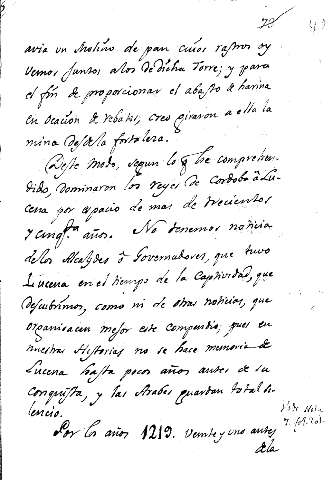 avia un Molino de pan cuios rastros oy
vemos juntos a los de dicha Torre; y para
el fin de proporcionar el abasto de harina
en ocacion de rebates, creo giraron a ella la
mina desde la fortaleza.
Deste modo, segun lo q he comprehen
dido, dominaron los reyes de Cordoba a Lu
cena por espacio de mas de trecientos
y cinqta años. No tenemos noticia
de los Alcaydes o Governadores, que tuvo
Lucena en el tiempo de la Captividad, que
descubrimos, como ni de otras noticias, que
organisacen mejor este compendio, pues en
nuestras Historias no se hace memoria de
Lucena hasta pocos años antes de su
conquista, y los Arabes guardan total si
lencio.
Por los años 1219. veinte y uno antes
de la